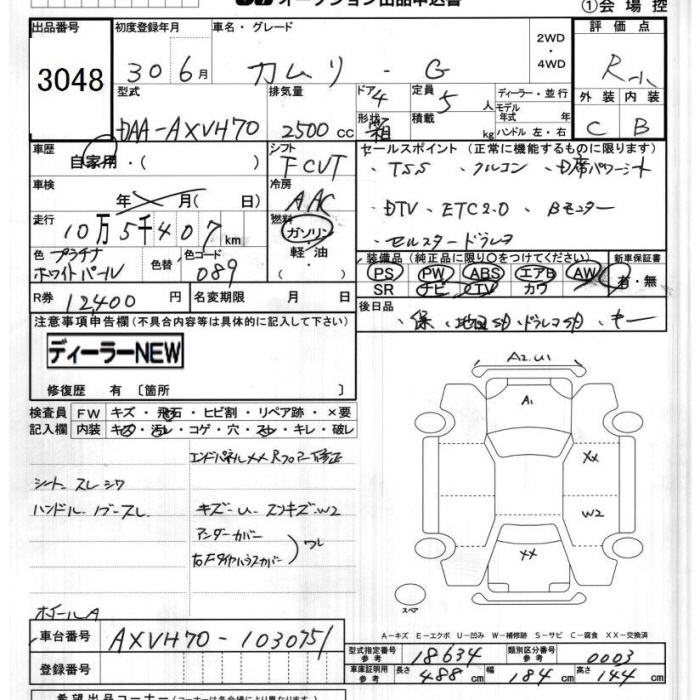 オークション出品申込書
①会場控
出品番号 初度登録年月 車名・グレード 評価点
3048 30 6月 カムリ - G 2WD・4WD R小
型式 排気量 ドア 4 定員 5人 ディーラー・並行 外装 内装
DAA-AXVH70 2500cc 形状 箱 積載 kg モデル年式 年 ハンドル 左・右 C B
車歴 自家用・( ) シフト FCVT セールスポイント (正常に機能するものに限ります)
・TSS ・クルコン ・D席パワーシート
車検 年 月( 日) 冷房 AAC
・DTV ・ETC2.0 ・Bモニター
走行 10万5千407km 燃料 ガソリン・軽油・( )
・セルスタードラレコ
色 プラチナホワイトパール 色替 色コード 089
装備品 (純正品に限り○をつけてください) 新車保証書
PS PW ABS エアB AW 有・無
SR ナビ TV カワ
R券 12,400円 名変期限 月 日
後日品 ・保、地図SD、ドラレコSD、キー
注意事項申告欄 (不具合内容等は具体的に記入して下さい)
ディーラーNEW
修復歴 有 〔箇所 〕
検査員記入欄 FW キズ・飛石・ヒビ割・リペア跡・×要
内装 キズ・汚れ・コゲ・穴・スレ・キレ・破レ
エンドパネルXX Rフロアー修正
シート スレシワ
ハンドル・ノブースレ
キズ-U- スリキズ・W2
アンダーカバー
右Fタイヤハウスカバー ワレ
ホイールA
A2.U1
A1
XX
W2
XX
スペア
A-キズ E-エクボ U-凹み W-補修跡 S-サビ C-腐食 XX-交換済
車台番号 AXVH70-1030751
型式指定番号 参考 18634 類別区分番号 参考 0003
登録番号 車庫証明用 参考 長さ 488cm 幅 184cm 高さ 144cm
希望出品コーナー (コーナーは各会場により異なります)